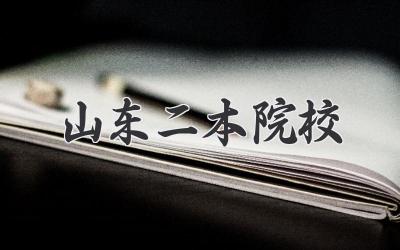 山东二本院校